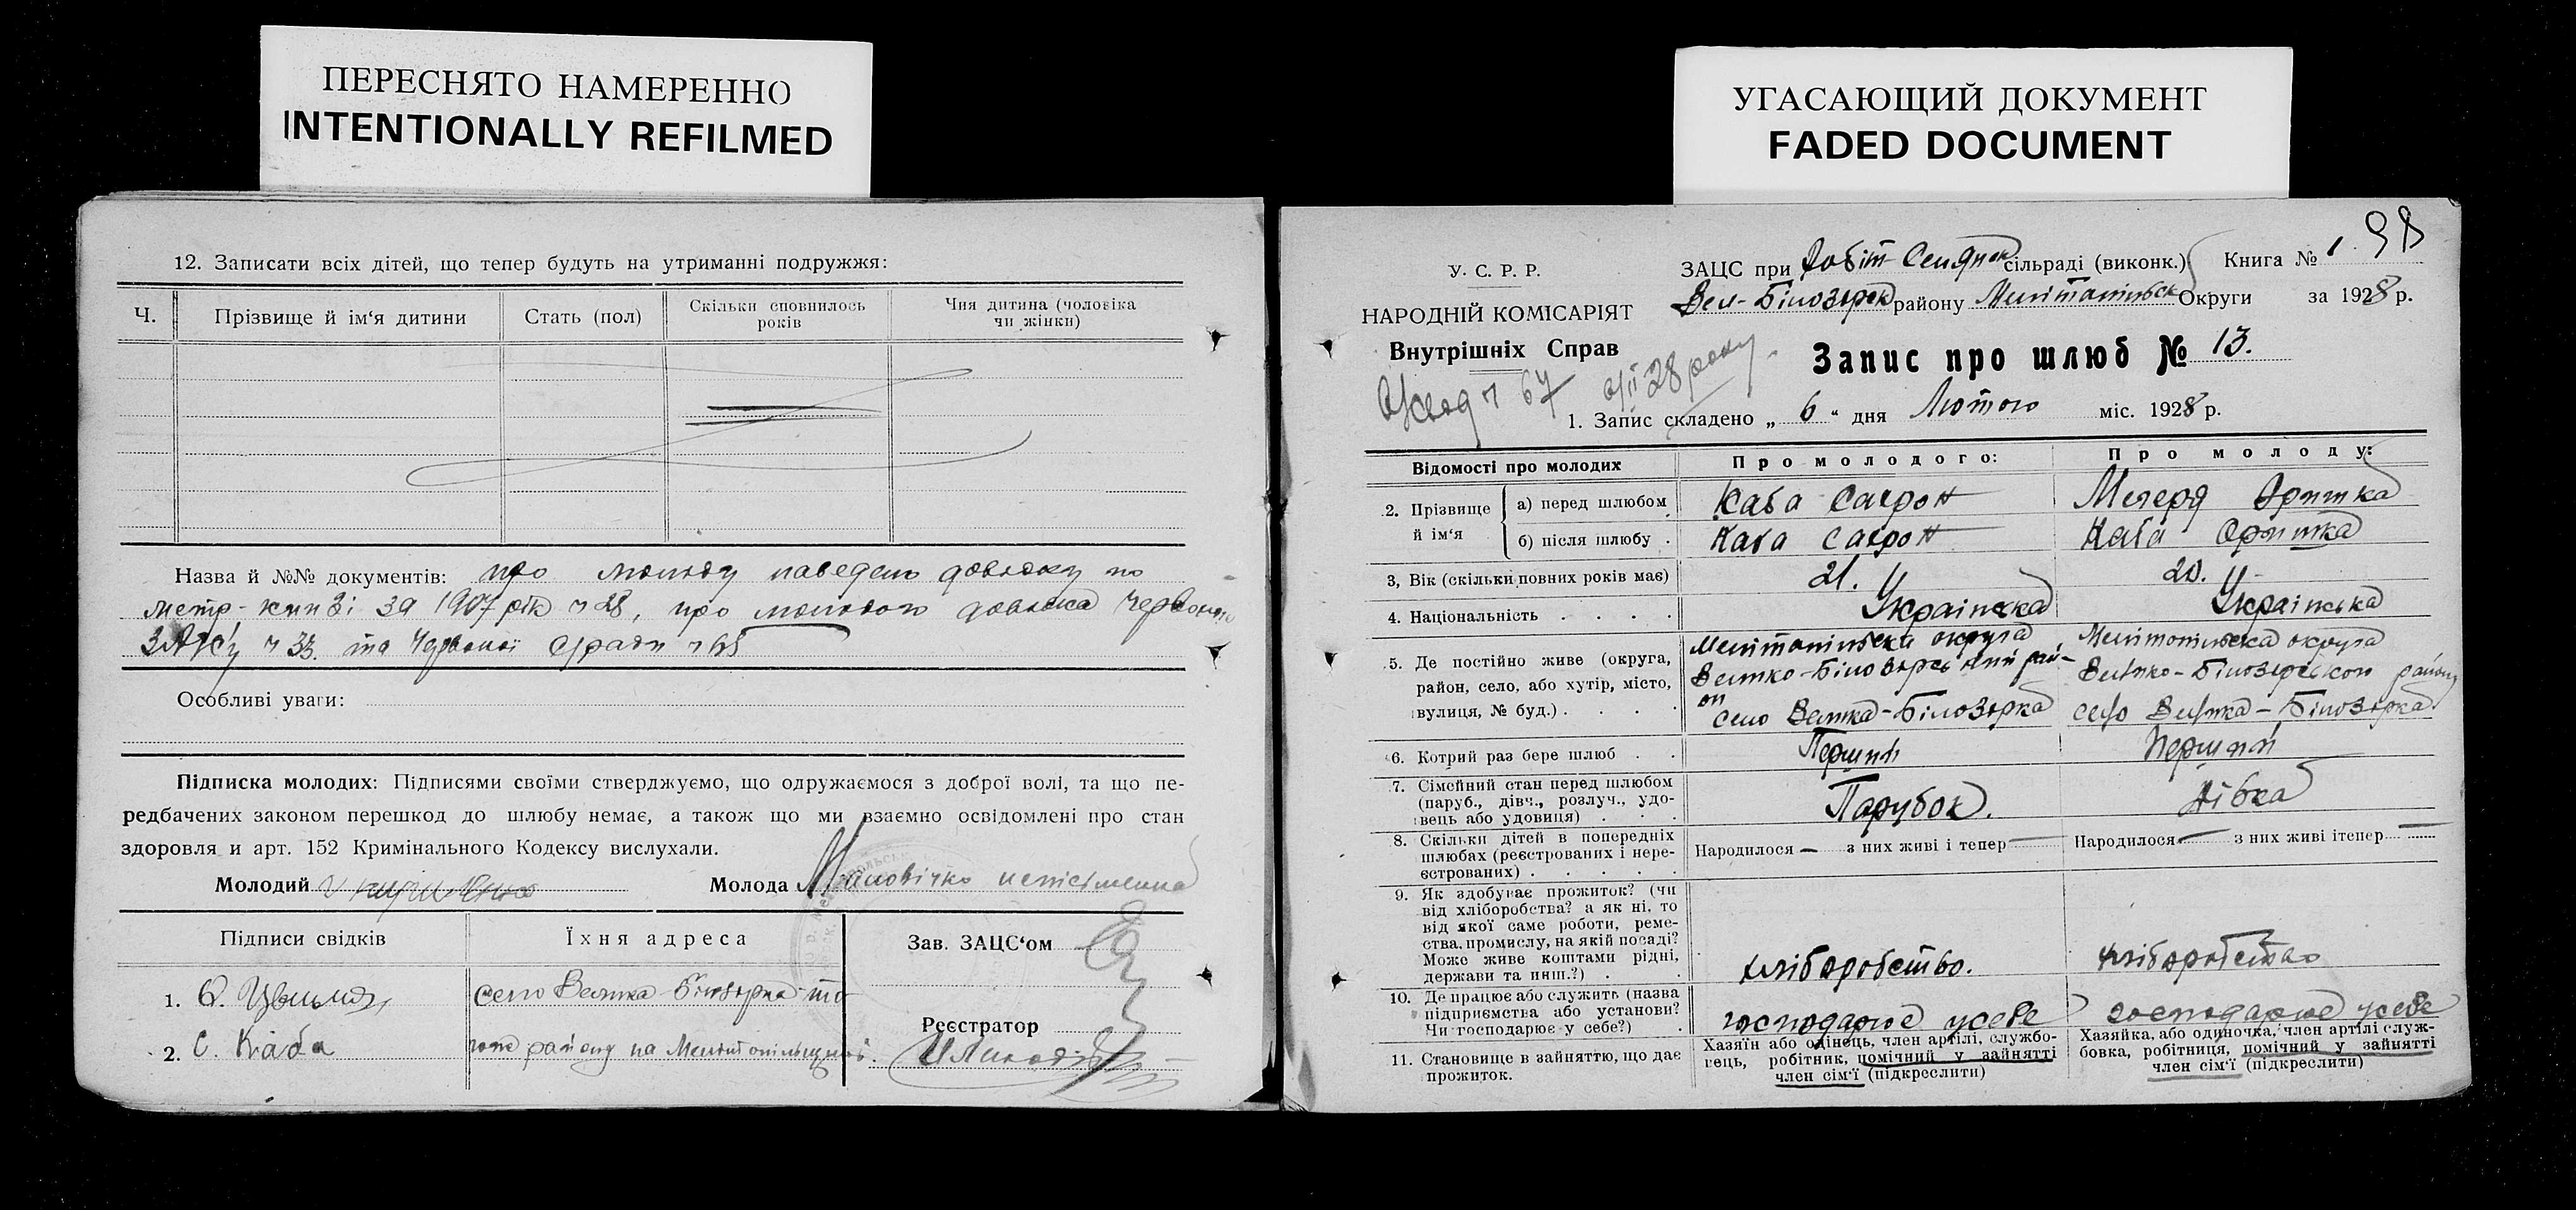 ПЕРЕСНЯТО НАМЕРЕННО
INTENTIONALLY REFILMED
УГАСАЮЩИЙ ДОКУМЕНТ
FADED DOCUMENT
12. Записати всіх дітей, що тепер будуть на утриманні подружжя:
Ч.
Прізвище й ім'я дитини
Стать (пол)
Скільки сповнилось
років
Чия дитина (чоловіка
чи жінки)
Назва й №№ документів: про молоду наведено довідку по
метр. книзі за 1907 рік ч 28, про молодого довідка Червоної
ч 33. та Червоної с/ради ч 65
Особливі уваги:
Підписка молодих: Підписями своїми стверджуємо, що одружаємося з доброї волі, та що пе-
редбачених законом перешкод до шлюбу немає, а також що ми взаємно освідомлені про стан
здоровля и арт. 152 Кримінального Кодексу вислухали.
Молодий
Молода неписьменна
Підписи свідків
Їхня адреса
Зав. ЗАЦС'ом
1.
село Велика Білозірка то
Реєстратор
2. С. Каба
району на Мелітопільщині.
У. С. Р. Р.
НАРОДНІЙ КОМІСАРІЯТ
Внутрішніх Справ
ч 67 28 року
ЗАЦС при Робіт-Селянск сільраді (виконк.) Книга № 1. 98
Вел-Білозірск району Мелітопільськ Округи за 1928 р.
Запис про шлюб № 13.
1. Запис складено „ 6 “ дня Лютого міс. 1928 р.
Відомості про молодих
Про молодого:
Про молоду:
2. Прізвище й ім'я
а) перед шлюбом
Каба Сафрон
Оришка
б) після шлюбу
Каба Сафрон
Каба Оришка
3, Вік (скільки повних років має)
21.
20.
4. Національність
Українська
Українська
5. Де постійно живе (округа,
район, село, або хутір, місто,
вулиця, № буд.)
Мелітопільська округа
Велико-Білозірський рай-
он
село Велика-Білозірка
Мелітопільська округа
Велико-Білозірського району
село Велика-Білозірка
6. Котрий раз бере шлюб
Перший
Перший
7. Сімейний стан перед шлюбом
(паруб., дівч., розлуч., удо-
вець або удовиця)
Парубок.
Дівка
8. Скільки дітей в попередніх
шлюбах (реєстрованих і нере-
єстрованих)
Народилося — з них живі і тепер —
Народилося — з них живі ітепер —
9. Як здобуває прожиток? (чи
від хліборобства? а як ні, то
від якої саме роботи, реме-
ства, промислу, на якій посаді?
Може живе коштами рідні,
держави та инш.?)
хліборобство.
хліборобство
10. Де працює або служить (назва
підприємства або установи?
Чи господарює у себе?)
господарює усебе
господарює усебе
11. Становище в зайняттю, що дає
прожиток.
Хазяїн або одінець, член артілі, службо-
вець, робітник, помічний у зайнятті
член сім'ї (підкреслити)
Хазяйка, або одиночка, член артілі служ-
бовка, робітниця, помічний у зайнятті
член сім'ї (підкреслити)